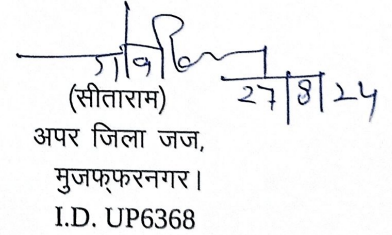 27/8/24
(सीताराम)
अपर जिला जज,
मुजफ्फरनगर।
I.D. UP6368